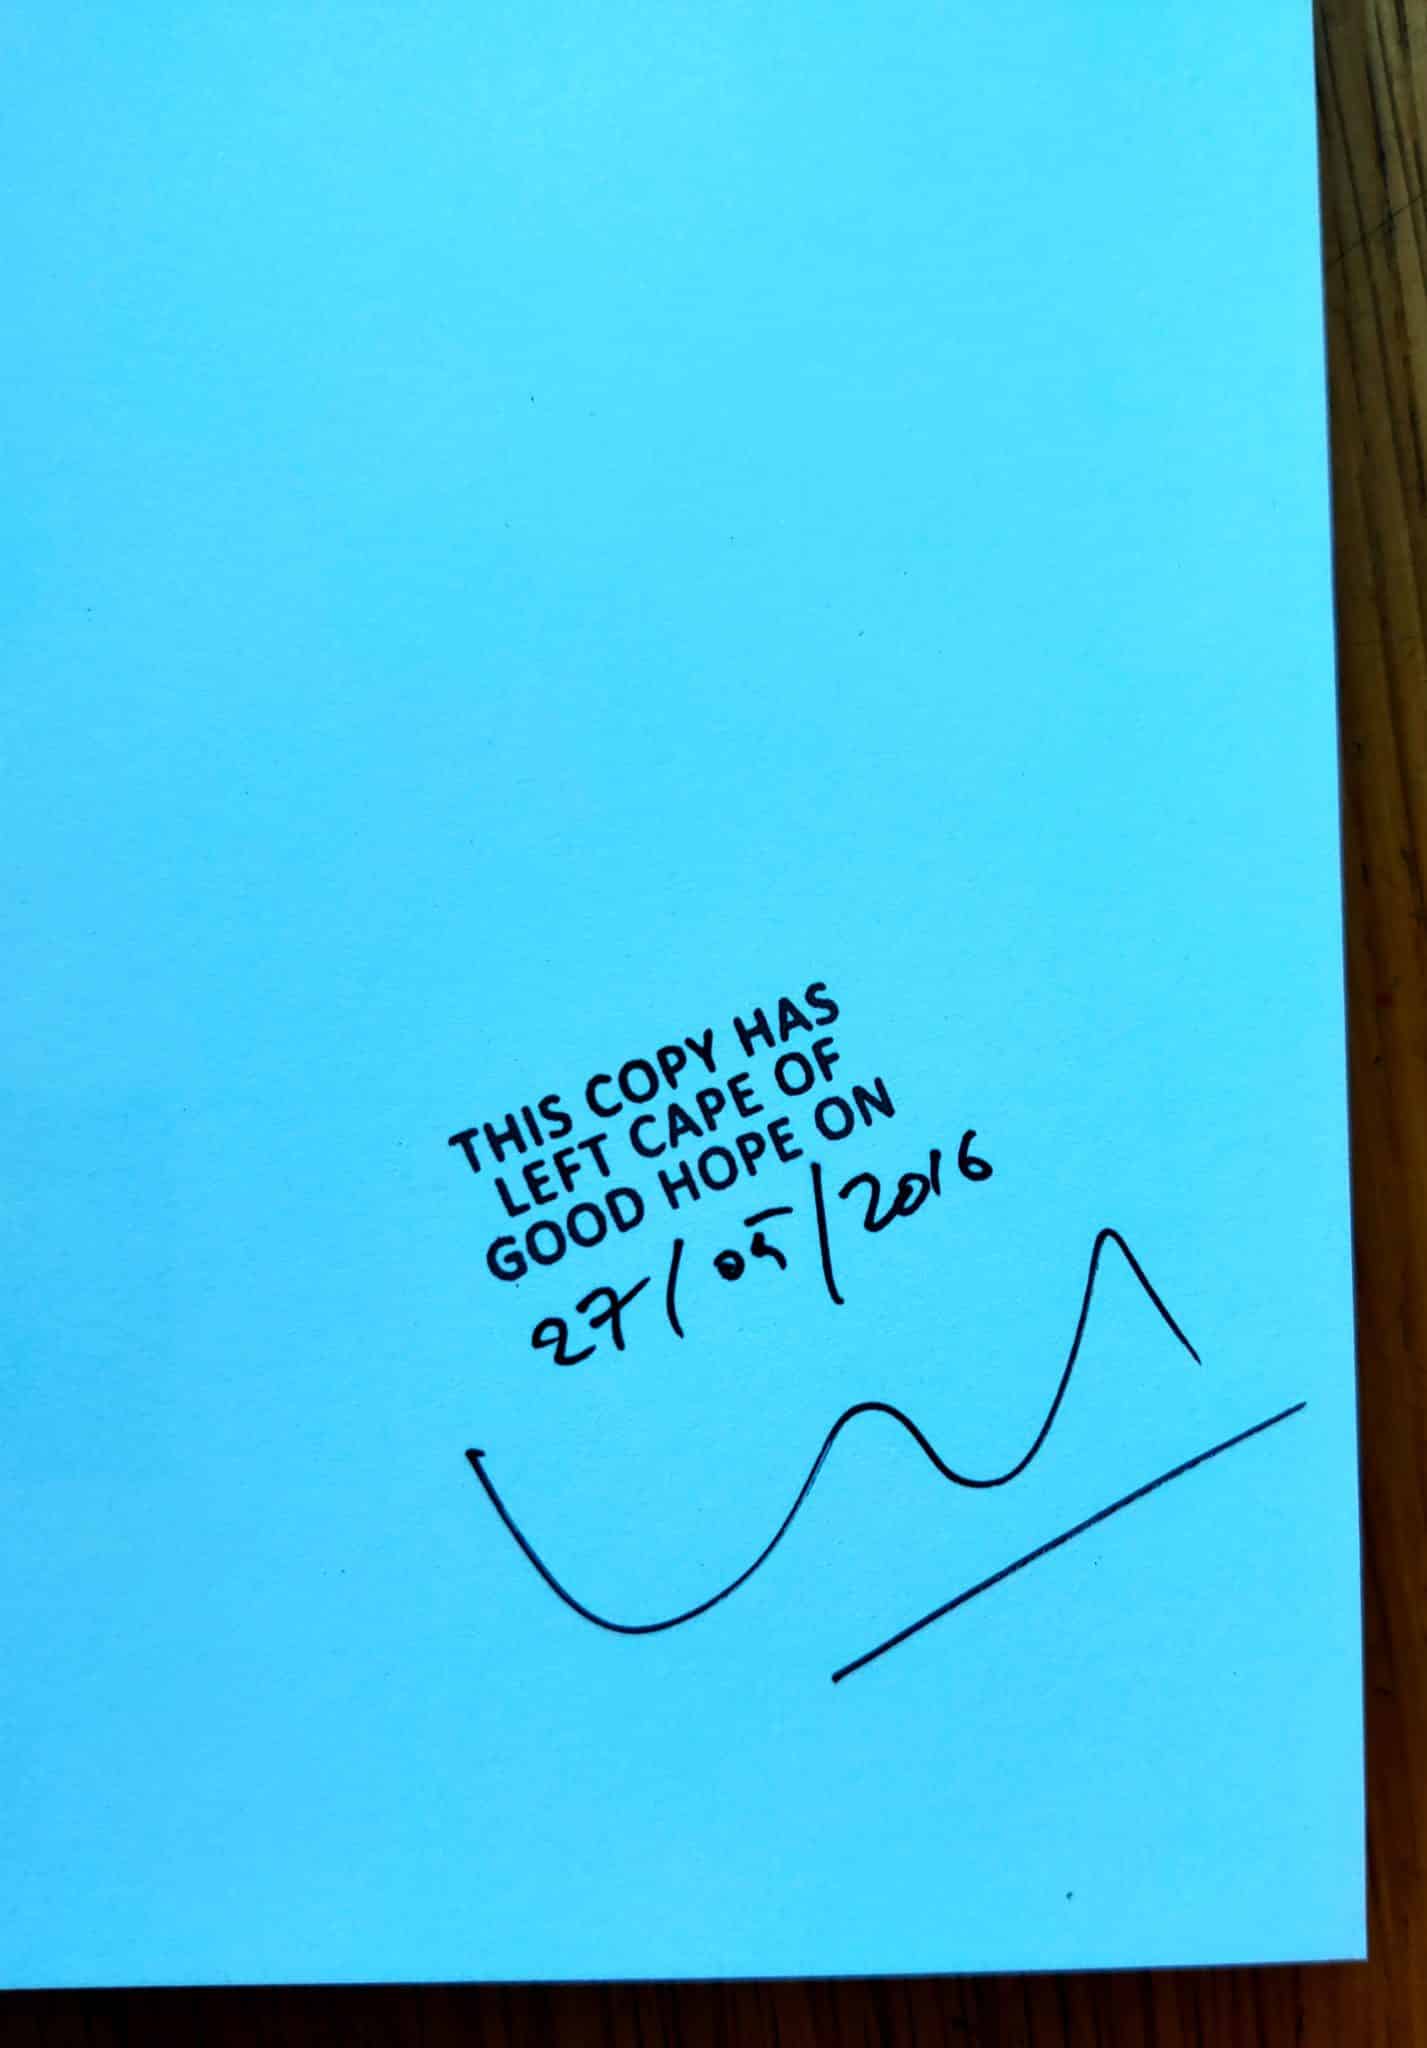 THIS COPY HAS
LEFT CAPE OF
GOOD HOPE ON
27/05/2016